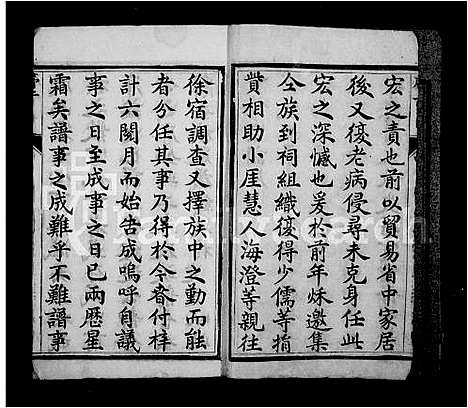 宏之責也前以貿易省中家居
後又復老病侵尋未克身任此
宏之深憾也爰於前年秌邀集
仝族到祠組織復得少儒等捐
貲相助小崖慧人海澄等親往
徐宿調查又擇族中之勤而能
者分任其事乃得於今春付梓
計六閱月而始告成嗚呼自議
事之日至成事之日已兩歷星
霜矣譜事之成難乎不難譜事